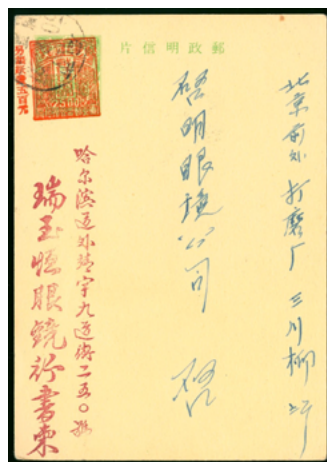 郵政明信片
北京前外打磨厂三川柳
啓明眼镜公司 啓
哈尔滨道外靖宇九道街二五〇號
瑞玉恒眼鏡行書柬